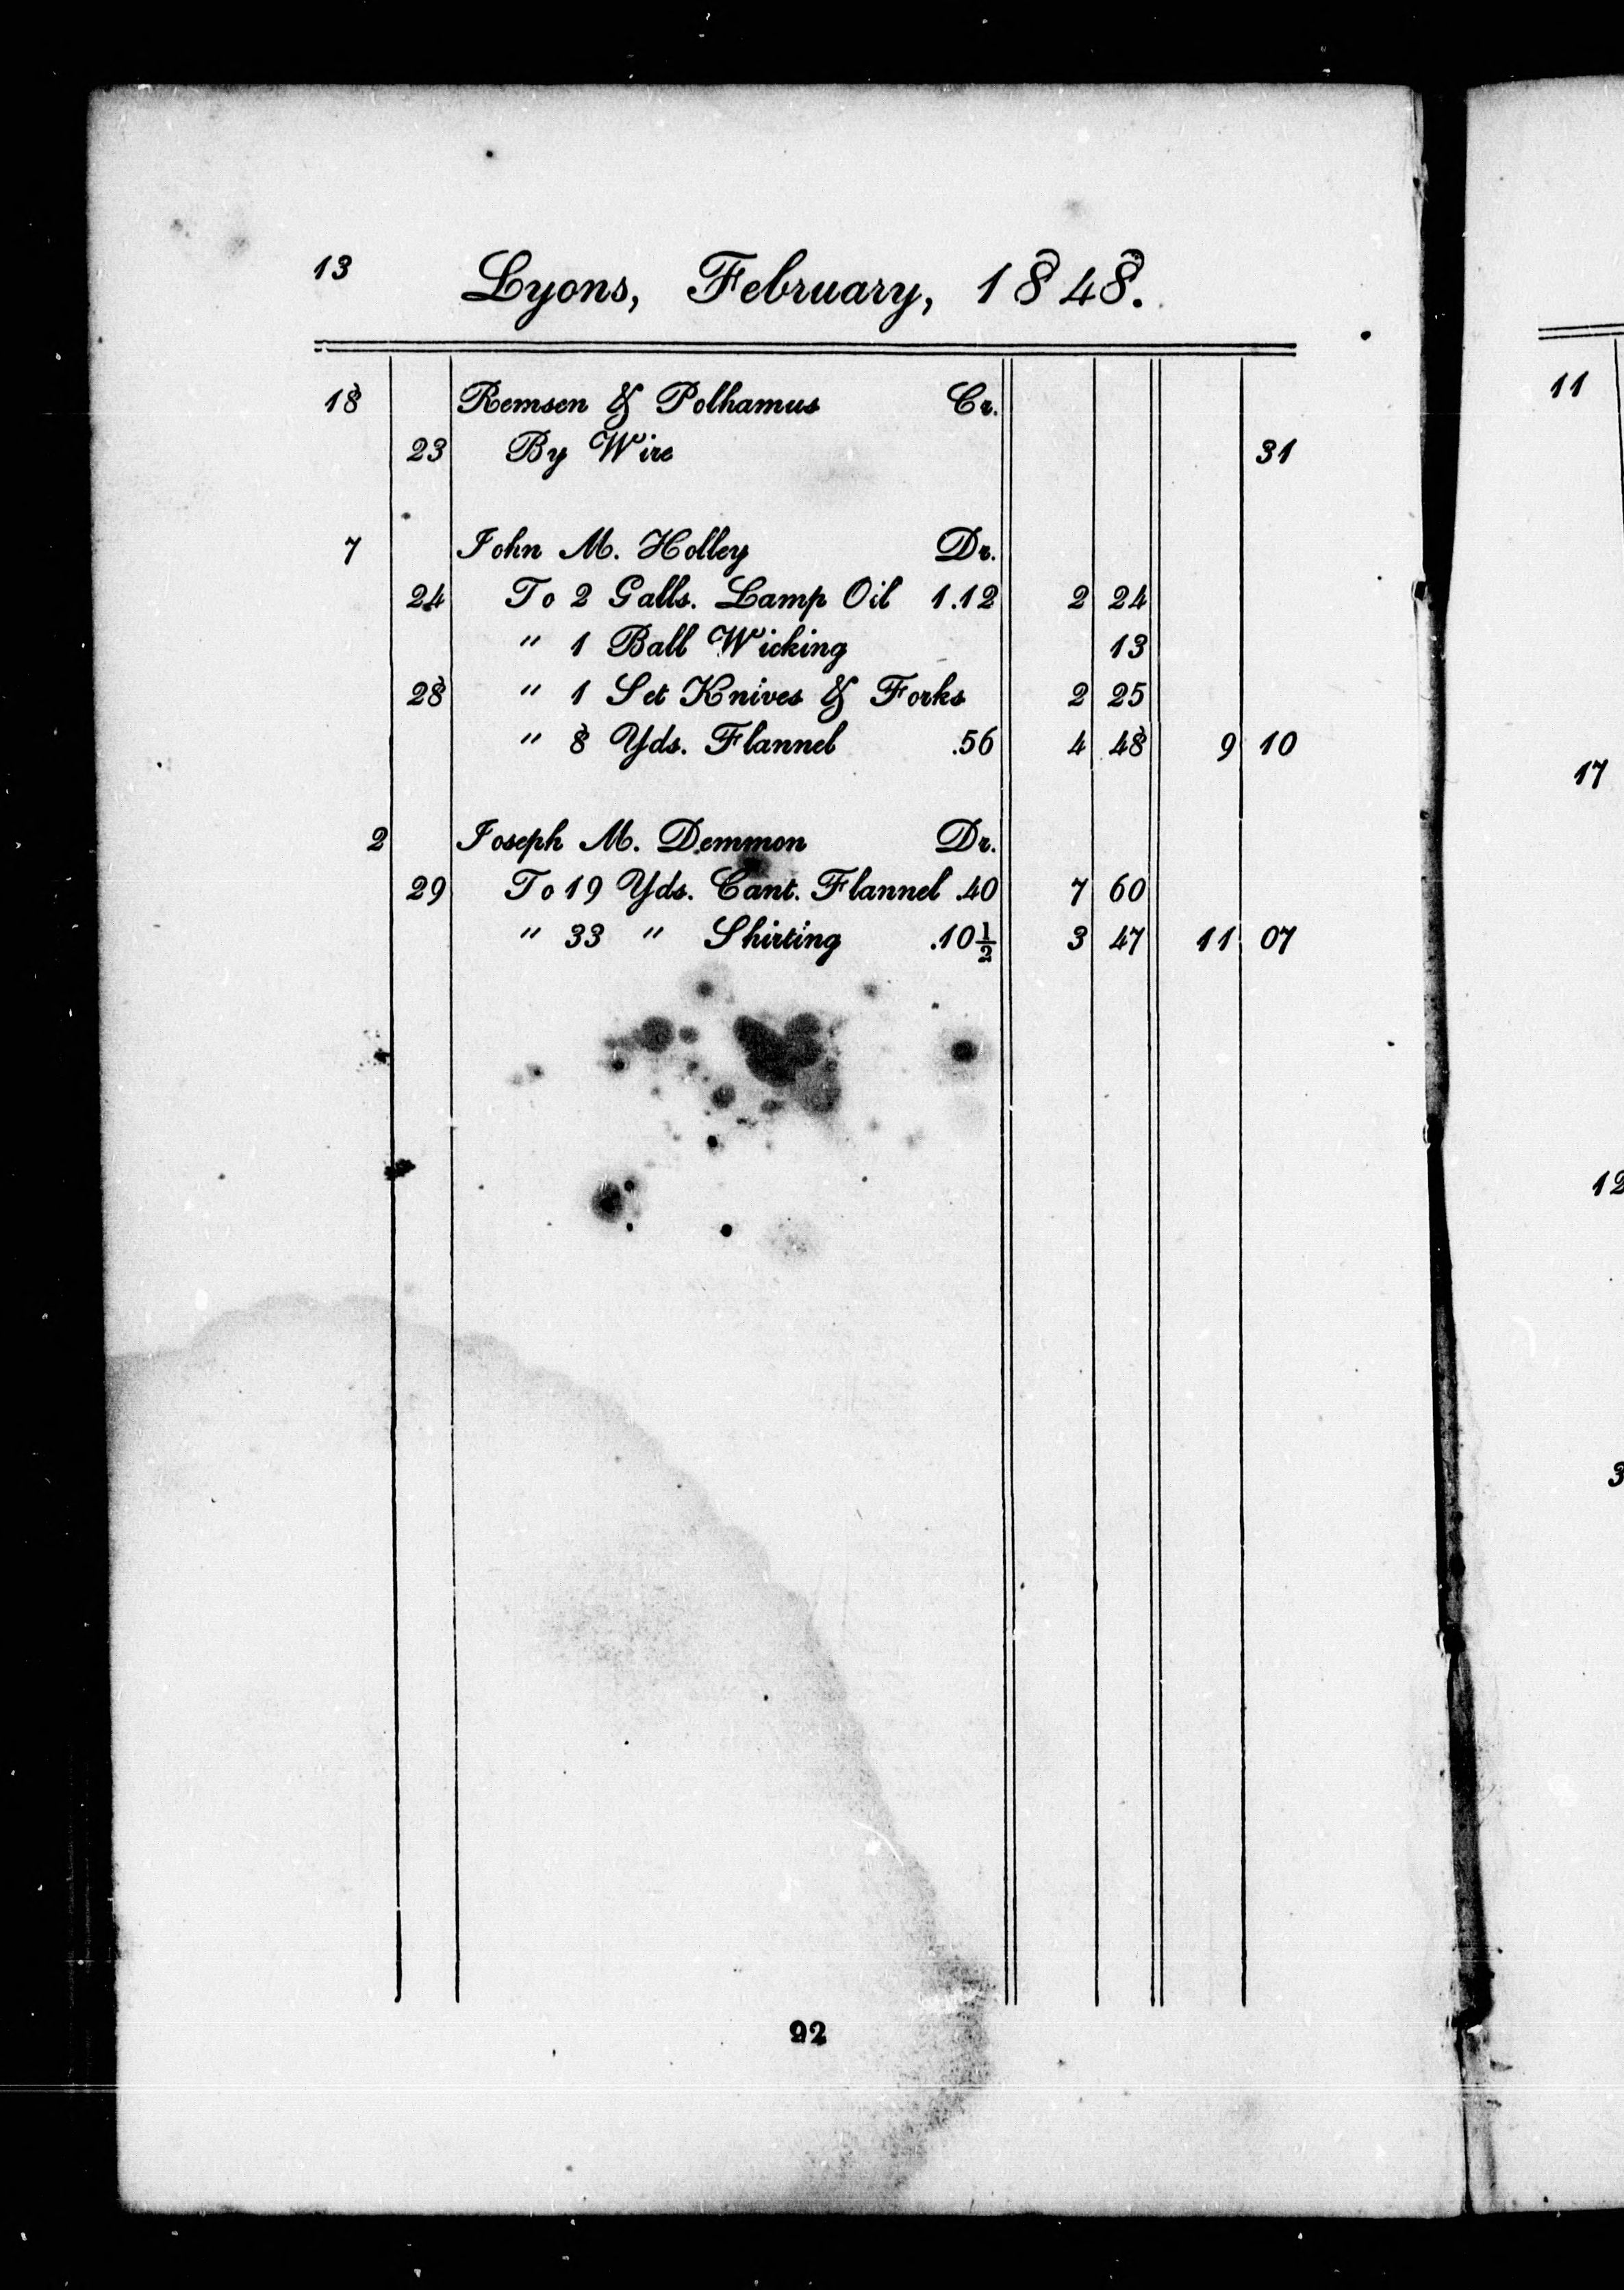 13 Lyons, February, 1848.
18 Remsen & Polhamus Cr.
23 By Wire 31
7 John M. Holley Dr.
24 To 2 Galls. Lamp Oil 1.12 2 24
" 1 Ball Wicking 13
28 " 1 Set Knives & Forks 2 25
" 8 Yds. Flannel .56 4 48 9 10
2 Joseph M. Demmon Dr.
29 To 19 Yds. Cant. Flannel .40 7 60
" 33 " Shirting .10½ 3 47 11 07
92
11
17
12
3